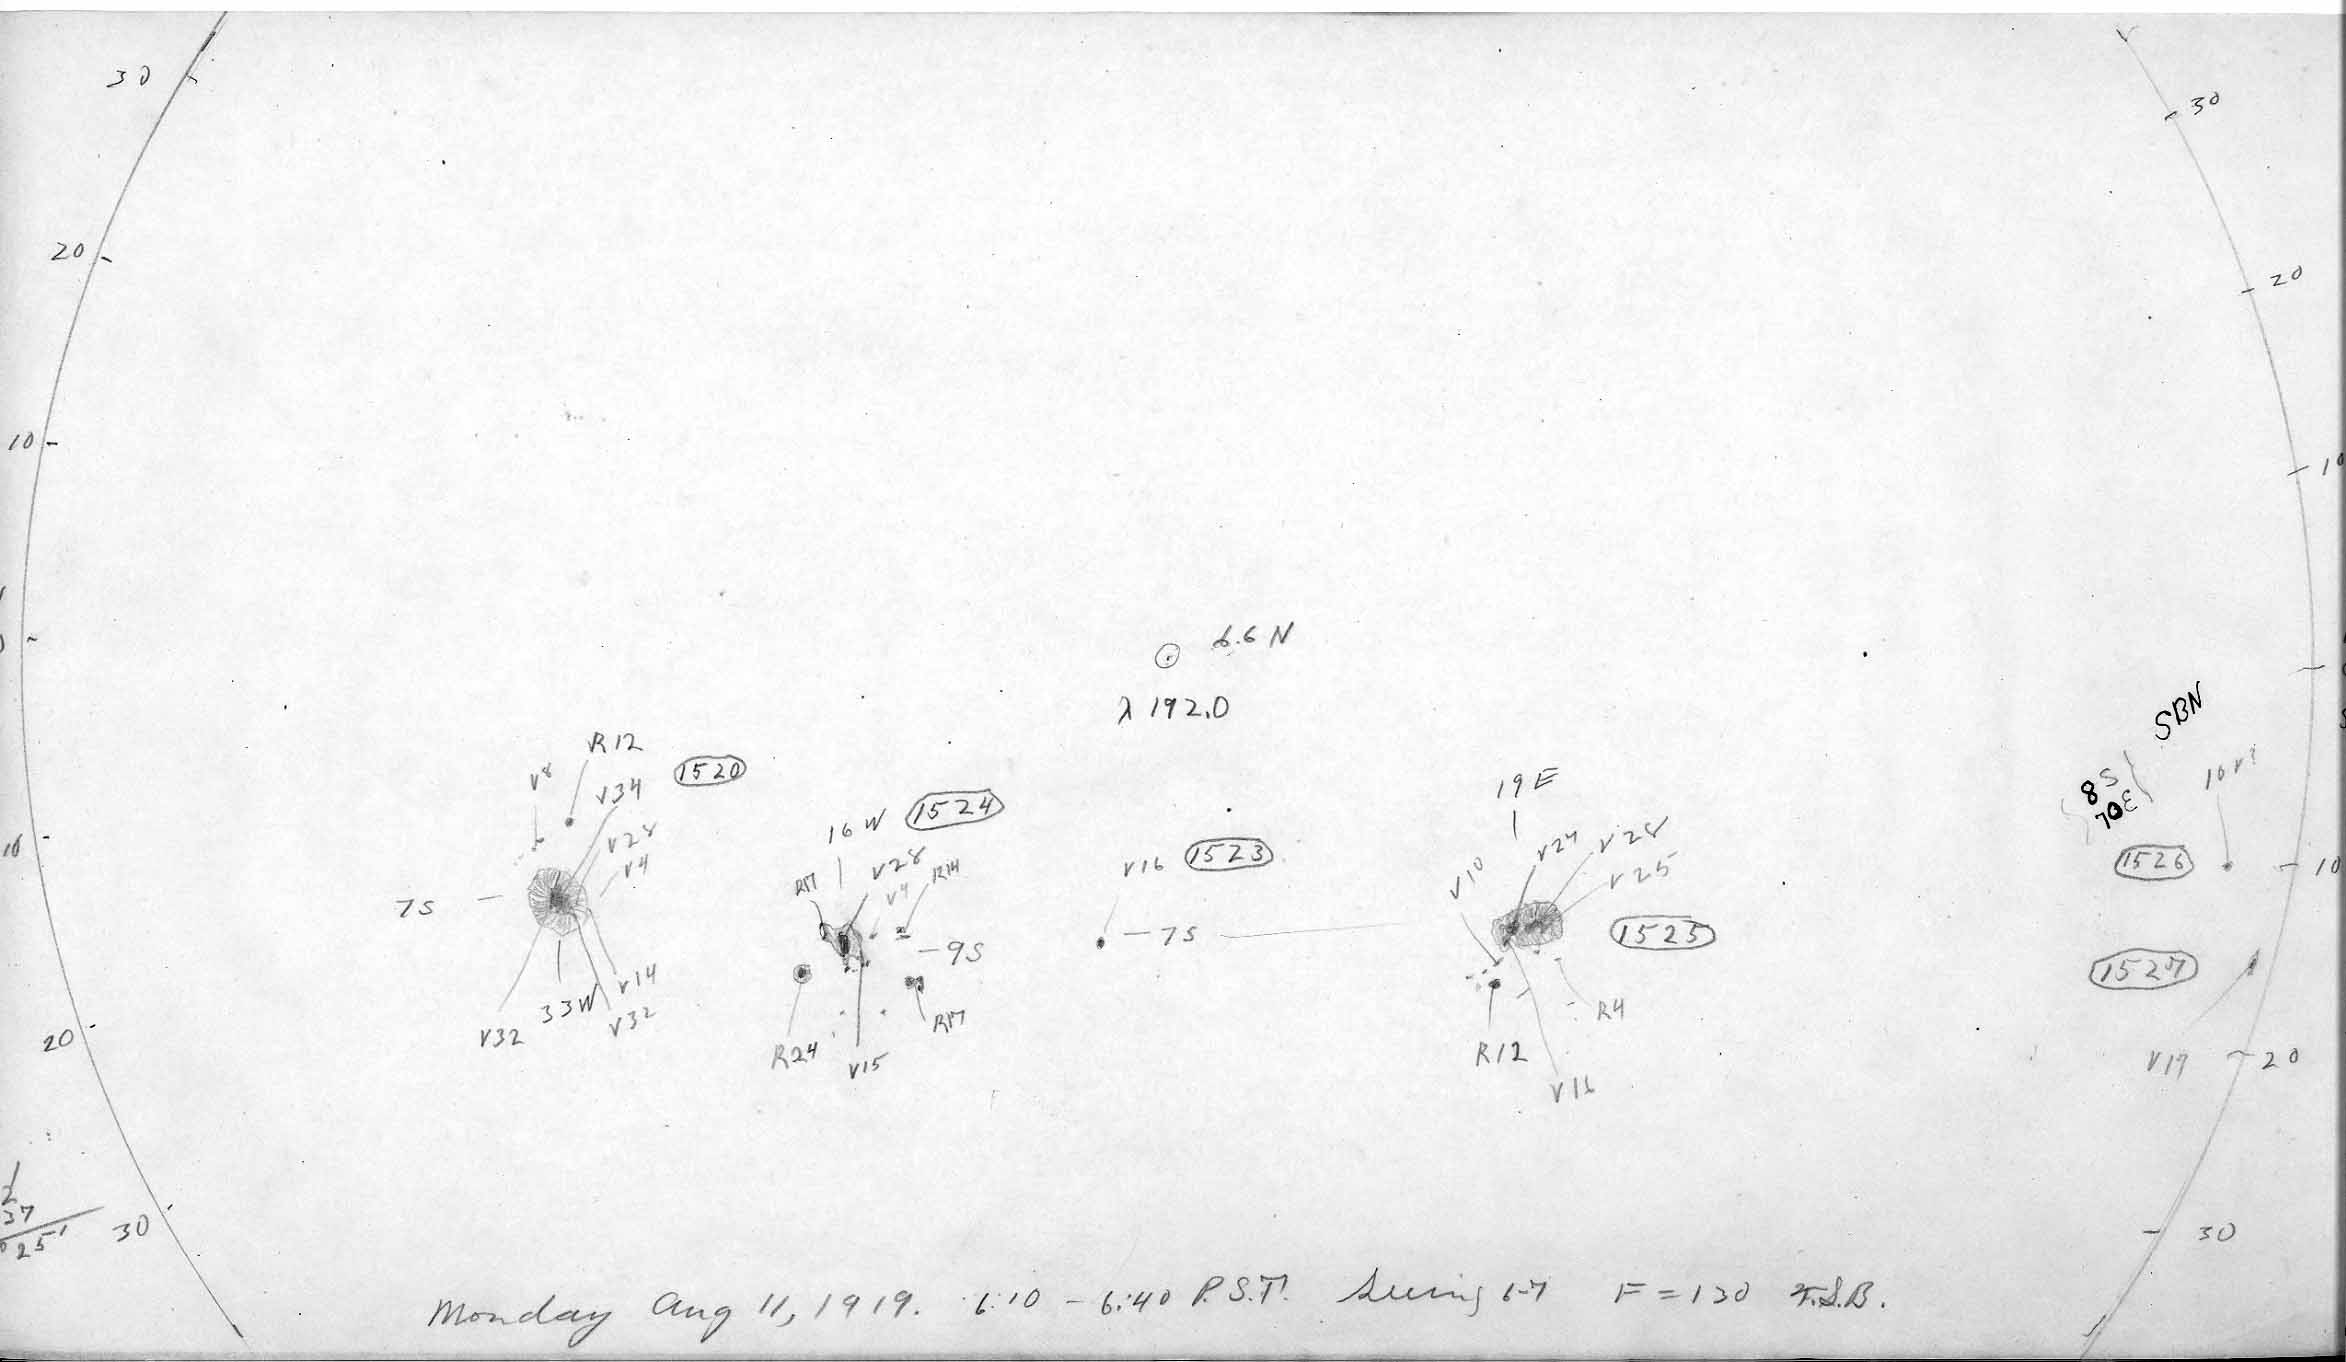 30
30
20
20
10
10
6.6 N
λ 192.0
SBN
R12
1520
V8
V34
V28
V4
7S
V32
33W
V14
V32
16W
1524
R17
V28
V4
R14
-9S
R24
V15
R17
V16
1523
-7S
19E
V10
V24
V28
V25
1525
R12
R4
V16
8S
70E
1526
10
1527
V17
10
20
20
37
25'
30
30
Monday Aug 11, 1919. 6:10 - 6:40 P.S.T. Seeing 6-7 F = 130 F.S.B.